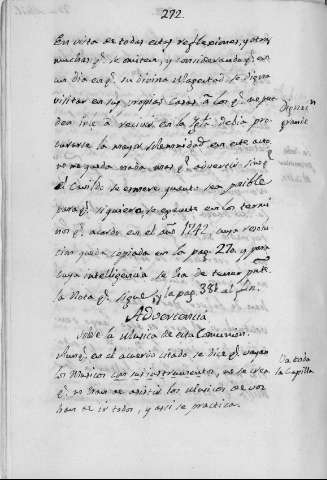 272
En vista de todas estas reflexiones, y otras
muchas q.e se omiten, y considerando q.e en
un dia en q.e su divina Magestad se digna
visitar en sus propias Casas a los q.e no pue
den ir a recivir en la Igl.a debia pro
curarse la mayor solemnidad en este acto
no me queda nada mas q.e advertir sino q.e
el Cavildo se esmere quanto sea posible
para q.e siquiera se execute en los termi
nos q.e acordó en el año 1742, cuya resolu
cion queda copiada en la pag. 270. y para
cuya intelligencia se ha de tener pnte.
la Nota q.e sigue, y la pag. 381 al fin.
Advertencia
Sobre la Musica de esta Comunion.
Aunq.e en el acuerdo citado se dice q.e vayan
los Musicos con sus instrumentos, no se crea
q.e no han de asistir los Musicos de voz
han de ir todos, y assi se practica.
grande
Va toda
la Capilla